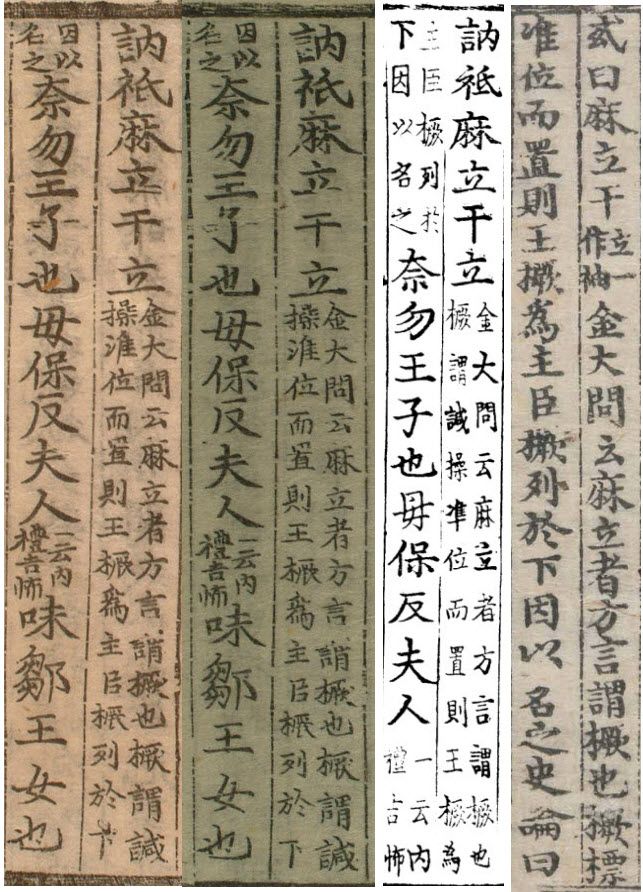 㦯曰麻立干立一作袖金大問云麻立者方言謂橛也橛標
准位而置則王橛為主臣橛列於下因以名之史論曰
訥祇麻立干立金大問云麻立者方言謂橛也橛謂諴操準位而置則王橛為
主臣橛列於下因以名之奈勿王子也毋保反夫人一云内禮吉怖
訥祇麻立干立金大問云麻立者方言謂橛也橛謂諴操准位而置則王橛爲主臣橛列於下
因以名之奈勿王子也毋保反夫人一云内禮吉怖味鄒王女也
訥祇麻立干立金大問云麻立者方言謂橛也橛謂諴操准位而置則王橛爲主臣橛列於下
因以名之奈勿王子也毋保反夫人一云内禮吉怖味鄒王女也